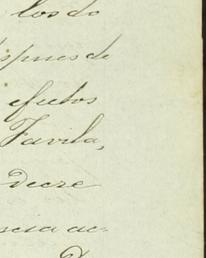 los do
spues de
efectos
Favila,
decre
ncia ac-